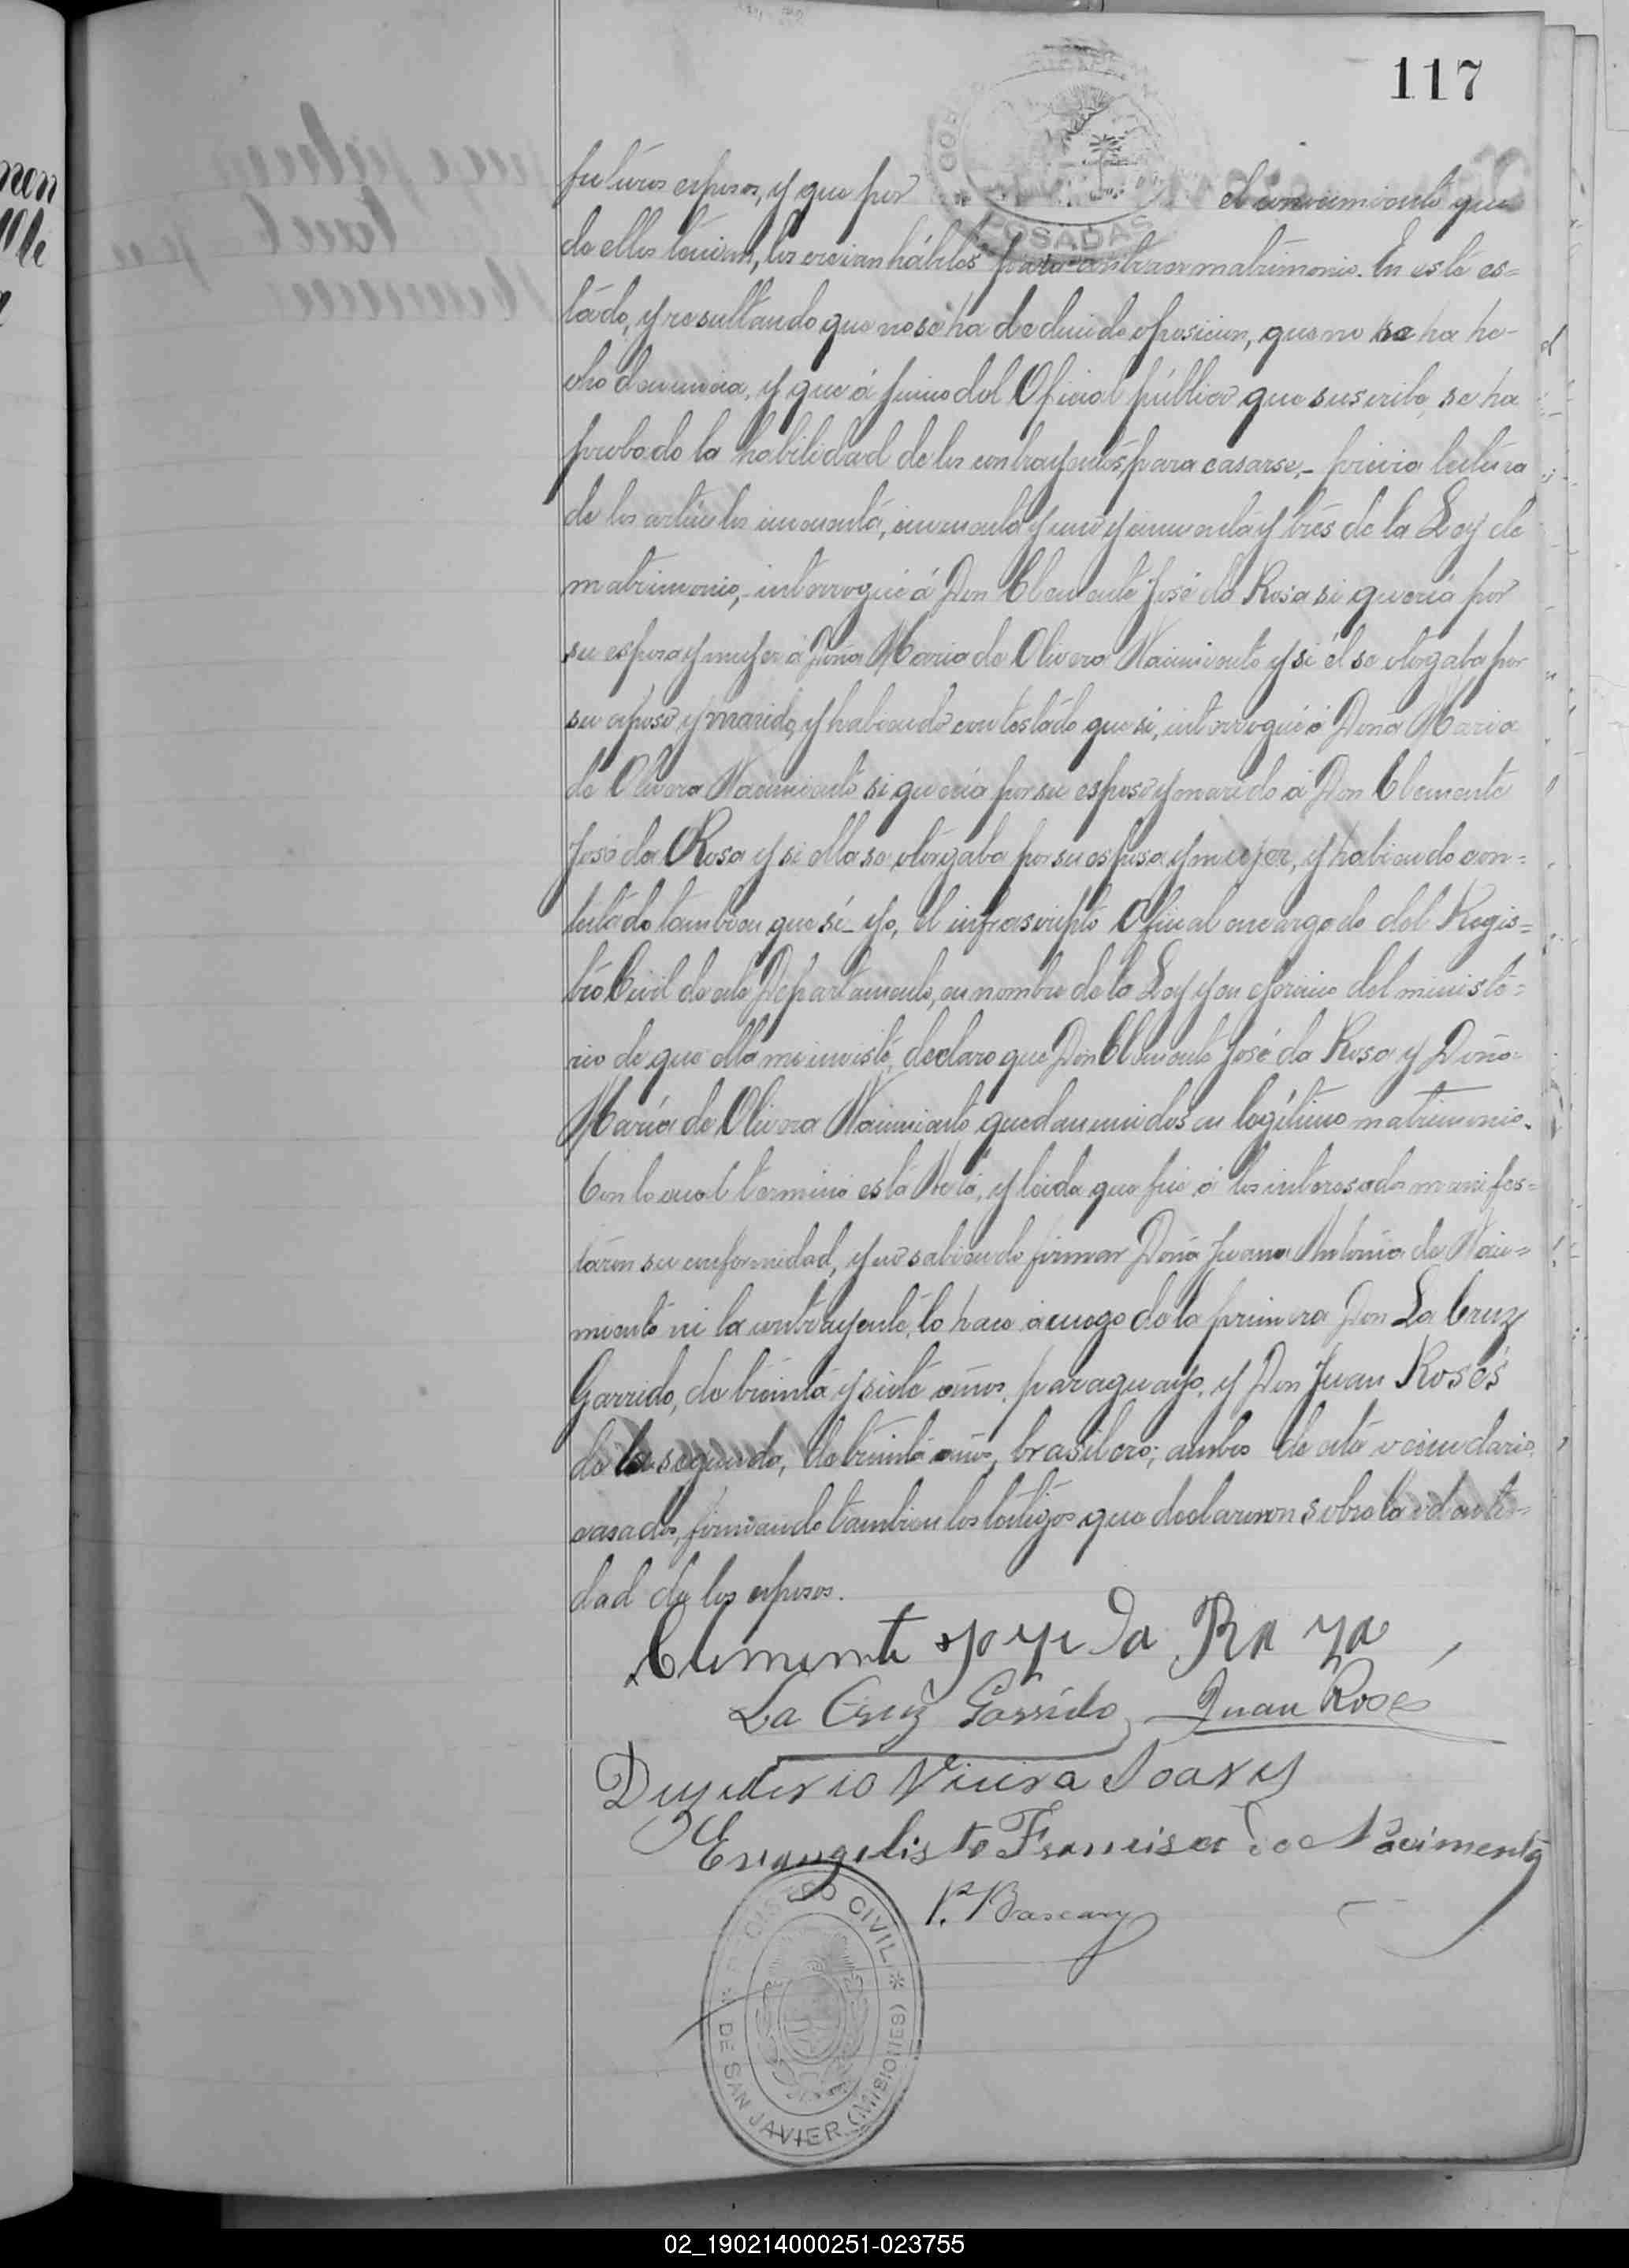 117
POSADAS
futuros esposos, y que por el conocimiento que
de ellos tenian, los creian hábiles para contraer matrimonio. En este es=
tado, y resultando que no se ha deducido oposicion, que no se ha he-
cho denuncia, y que á juicio del Oficial público que suscribe, se ha
probado la habilidad de los contrayentes para casarse,- previa lectura
de los artículos cincuenta, cincuenta y uno y cincuenta y tres de la Ley de
matrimonio,- interrogué á Don Clemente José da Rosa si queria por
su esposa y mujer á Doña Maria de Olivera Nacimiento y si él se otorgaba por
su esposo y marido, y habiendo contestado que si, interrogué á Doña Maria
de Olivera Nacimiento si queria por su esposo y marido á Don Clemente
José da Rosa y si ella se otorgaba por su esposa y mujer, y habiendo con=
testado tambien que sí- yo, el infrascripto Oficial encargado del Regis=
tro Civil de este Departamento, en nombre de la Ley y en ejercicio del ministe=
rio de que ella me inviste, declaro que Don Clemente José da Rosa y Doña=
María de Olivera Nacimiento quedan unidos en legítimo matrimonio.
Con lo cual terminó esta Acta, y leida que fué á los interesados manifes=
taron su conformidad, y no sabiendo firmar Doña Juana Antonia de Naci=
miento ni la contrayente, lo hace á ruego de la primera Don La Cruz
Garrido, de treinta y siete años, paraguayo, y Don Juan Rosés
de la segunda, de treinta años, brasilero; ambos de este vecindario,
casados, firmando tambien los testigos que declararon sobre la identi=
dad de los esposos.
Clemente Joze Da Roza
La Cruz Garrido Juan Rosés
Dezederio Vieira Soares
Evangelisto Francisco do Nacimento
P. Bascary
REGISTRO CIVIL
* DE SAN JAVIER (MISIONES) *
02_190214000251-023755